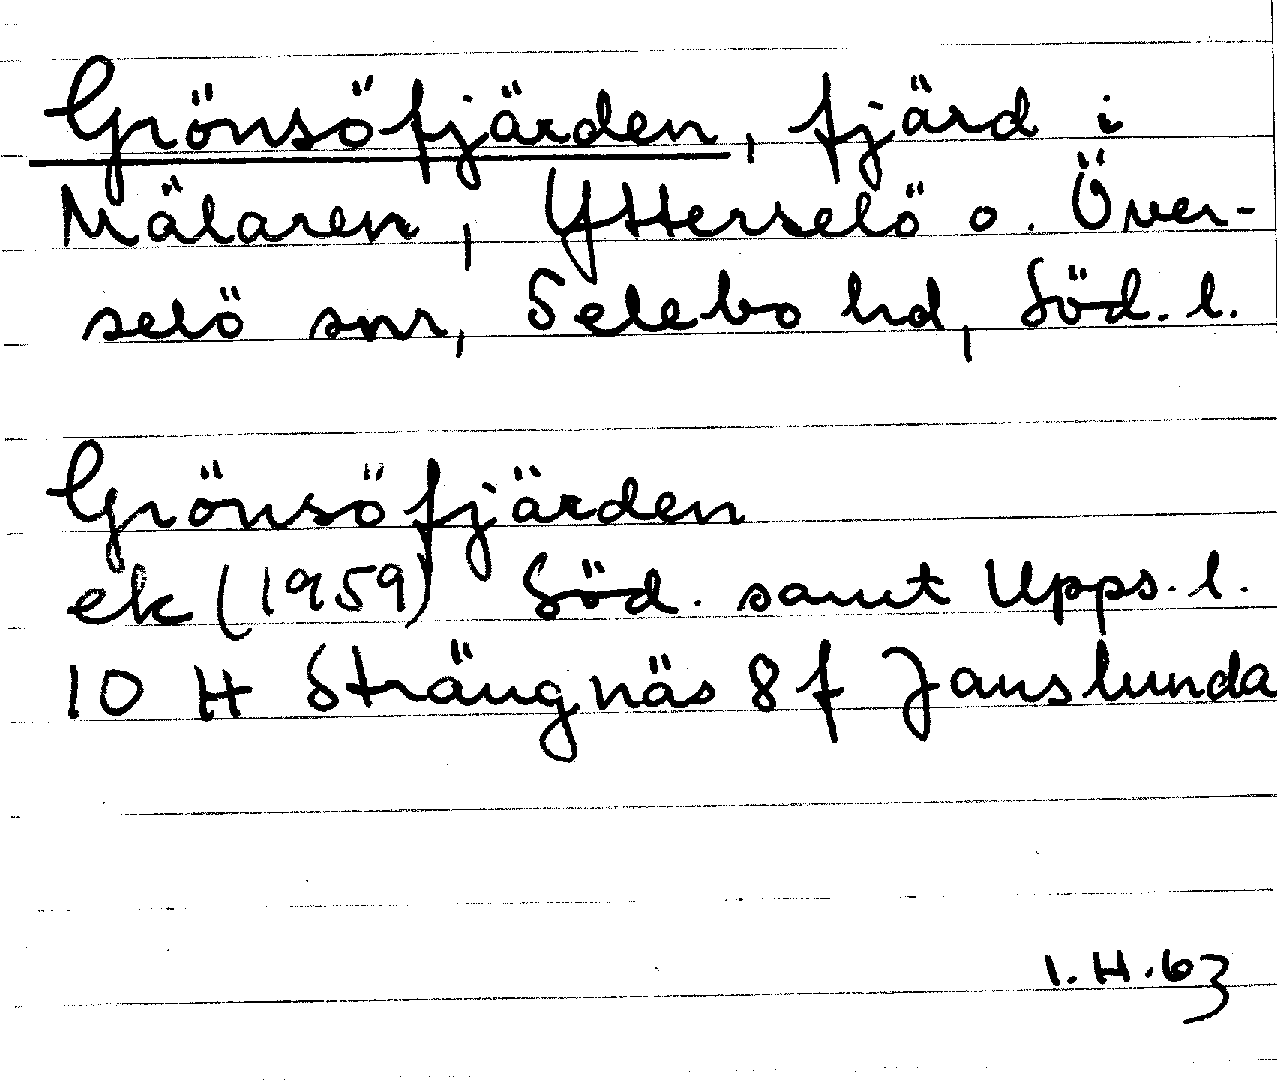 Grönsöfjärden, fjärd i
Mälaren, Ytterselö o. Över-
selö snr, Selebo hd, Söd. l.
Grönsöfjärden
ek (1959) Söd. samt Upps. l.
10 H Strängnäs 8 f Janslunda
I. H. 63